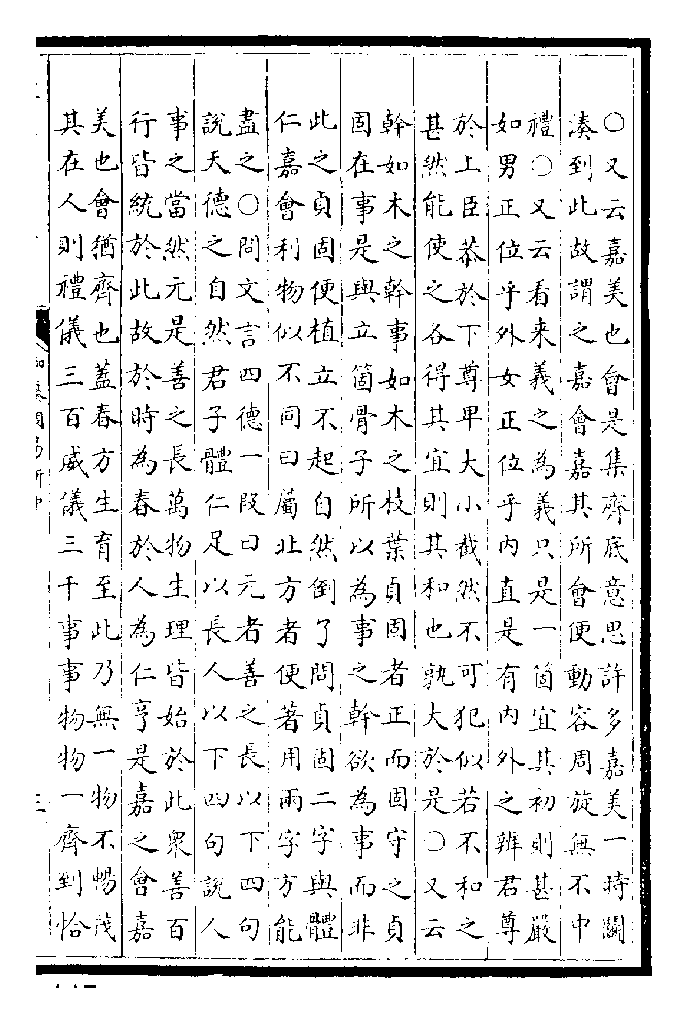 〇又云嘉美也會是集齊底意思許多嘉美一時鬬
湊到此故謂之嘉會嘉其所會便動容周旋無不中
禮〇又云看来義之為義只是一箇宜其初則甚嚴
如男正位乎外女正位乎内直是有内外之辨君尊
於上臣恭於下尊卑大小截然不可犯似若不和之
甚然能使之各得其宜則其和也孰大於是〇又云
幹如木之幹事如木之枝葉貞固者正而固守之貞
固在事是與立箇骨子所以為事之幹欲為事而非
此之貞固便植立不起自然倒了問貞固二字與體
仁嘉會利物似不同曰屬北方者便著用兩字方能
盡之〇問文言四德一段曰元者善之長以下四句
說天德之自然君子體仁足以長人以下四句説人
事之當然元是善之長萬物生理皆始於此衆善百
行皆統於此故於時為春於人為仁亨是嘉之會嘉
美也會猶齊也蓋春方生育至此乃無一物不暢茂
其在人則禮儀三百威儀三千事事物物一齊到恰